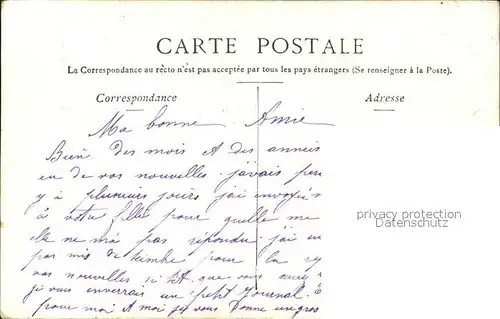 CARTE POSTALE
La Correspondance au recto n'est pas acceptée par tous les pays étrangers (Se renseigner à la Poste).
Correspondance Adresse
Ma bonne Amie
Bien des mois et des années
eu de vos nouvelles javais peu
y à plusieurs jours j'ai envoyés
à votre fille pour quelle me
elle ne m'a pas répondu j'ai eu
pas mis de timbre pour la
vos nouvelles si tôt que vous aurez
je vous enverrais un petit Journal
pour moi A moi je vous donne un gros
privacy protection